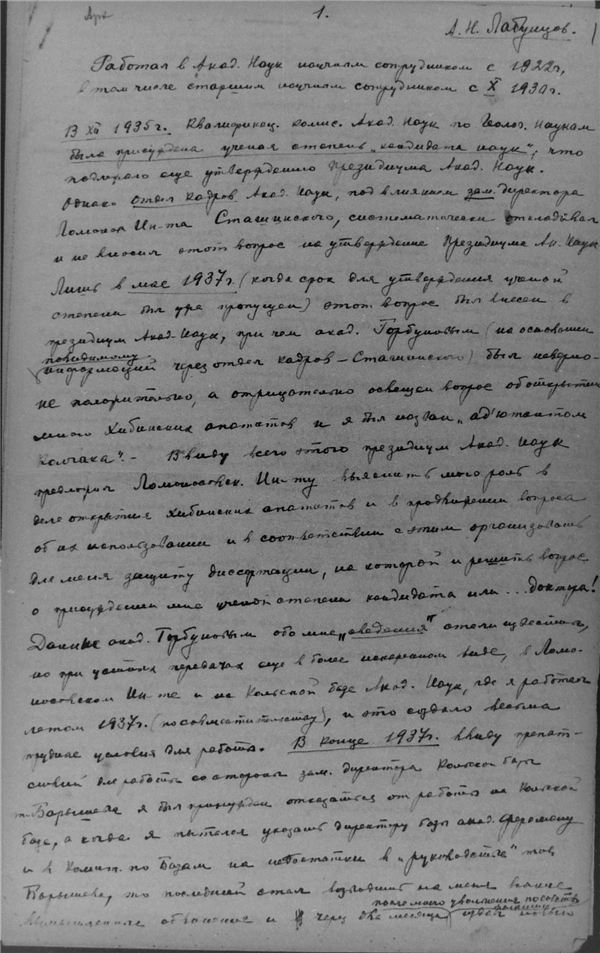 Арх
1.
А. Н. Лабунцов.
Работал в Акад. Наук научным сотрудником с 1922 г,
в том числе старшим научным сотрудником с X 1930 г.
В XII 1935 г. Квалификац. комис. Акад. Наук по Геолог. Наукам
была присуждена ученая степень „кандидата наук", что
подлежало еще утверждению Президиума Акад. Наук.
Однако отдел кадров Акад. Наук, под влиянием зам. директора
Ломонос. Ин-та Сташинского, систематически откладывал
и не вносил этот вопрос на утверждение Президиума Ак. Наук
Лишь в мае 1937 г. (когда срок для утверждения ученой
степени был уже пропущен) этот вопрос был внесен в
президиум Акад. Наук, при чем акад. Горбуновым (на основании
повидимому
информаций через отдел кадров – Сташинского) был неверно
не только, а отрицательно освещен вопрос об открытии
мною Хибинских апатитов и я был назван „ад'ютантом
Колчака". – Ввиду всего этого президиум Акад. Наук
предложил Ломоносовск. Ин-ту выяснить мою роль в
деле открытия Хибинских апатитов и в продвижении вопроса
об их использовании и в соответствии с этим организовать
для меня защиту диссертации, на которой и решить вопрос
о присуждении мне ученой степени кандидата или ... доктора!
Данные акад. Горбуновым обо мне „сведения" стали известны,
но при устных передачах еще в более искаженом виде, в Ломо-
носовском Ин-те и на Кольской базе Акад. Наук, где я работал
летом 1937 г. (по совместительству), и это создало весьма
трудные условия для работы. В конце 1937 г. ввиду препят-
ствий для работы со стороны зам. директора Кольской базы
т. Барышева я был принужден отказаться от работы на Кольской
базе, а когда я пытался указать директору базы акад. Ферсману
и в Комит. по Базам на недостатки в „руководстве" тов
Барышева, то последний стал возводить на меня всякие
после моего увольнения
вымышленные обвинения и через два месяца